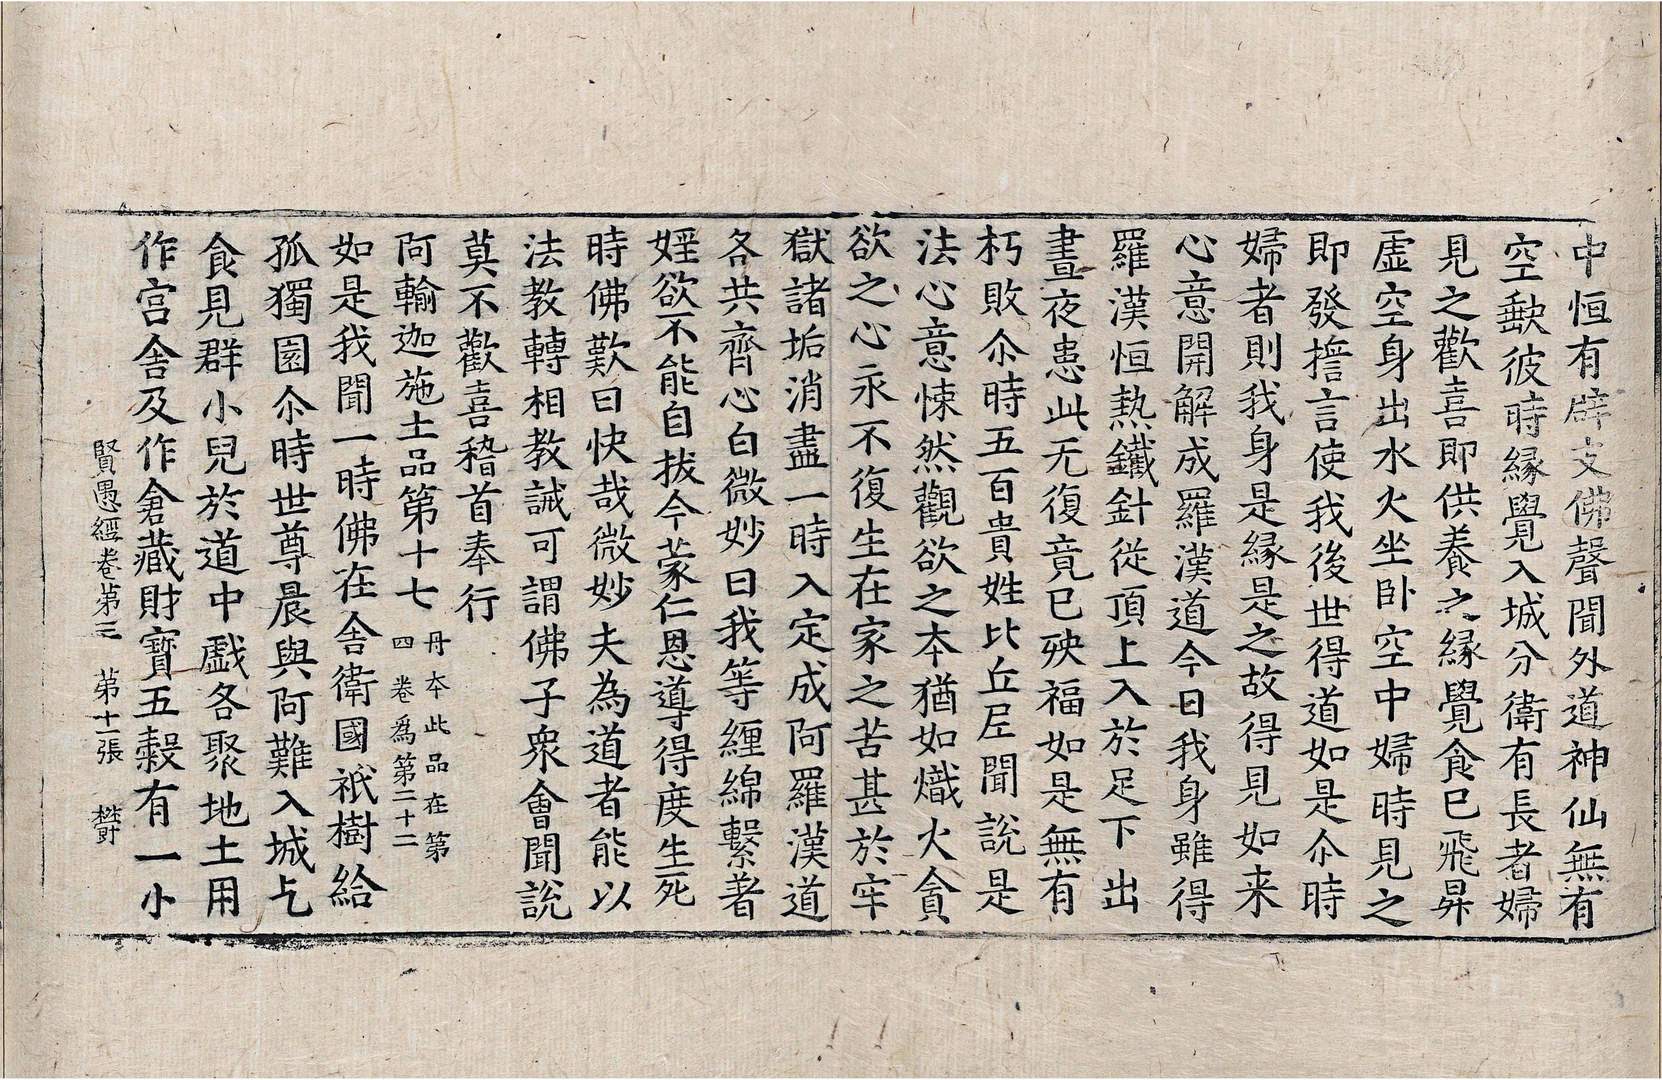 中恒有辟支佛聲聞外道神仙無有
空歡彼時縁覺入城分衛有長者婦
見之歡喜即供養之縁覺食已飛昇
虛空身出水火坐卧空中婦時見之
即發誓言使我後世得道如是尒時
婦者則我身是縁是之故得見如来
心意開解成羅漢道今日我身雖得
羅漢恒熱鐵針従頂上入於足下出
晝夜患此无復竟已殃福如是無有
朽敗尒時五百貴姓比丘尼聞說是
法心意悚然觀欲之夲猶如熾火貪
欲之心永不復生在家之苦甚於牢
獄諸垢消盡一時入定成阿羅漢道
各共齊心白微妙曰我等纒綿繫著
婬欲不能自拔今蒙仁恩導得度生死
時佛歎曰快哉微妙夫為道者能以
法教轉相教誡可謂佛子衆會聞說
莫不歡喜稽首奉行
阿輸迦施土品第十七 丹夲此品在第四卷為第二十二
如是我聞一時佛在舍衛國祇樹給
孤獨園尒時世尊晨與阿難入城乞
食見群小兒於道中戯各聚地土用
作宫舍及作倉藏財寶五穀有一小
賢愚經卷第三 第十一張 欝